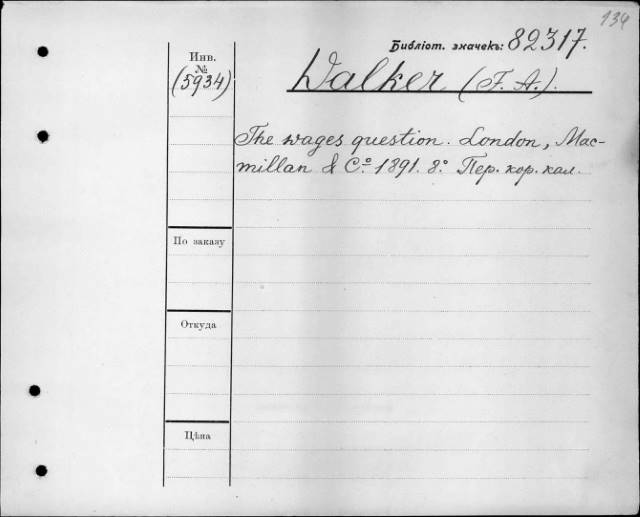 134
Библіот. значекъ: 82317.
Инв.
№
(5934)
Walker (F. A.).
The wages question. London, Mac-
millan & Cº 1891. 8º Пер. кор. кал.
По заказу
Откуда
Цѣна